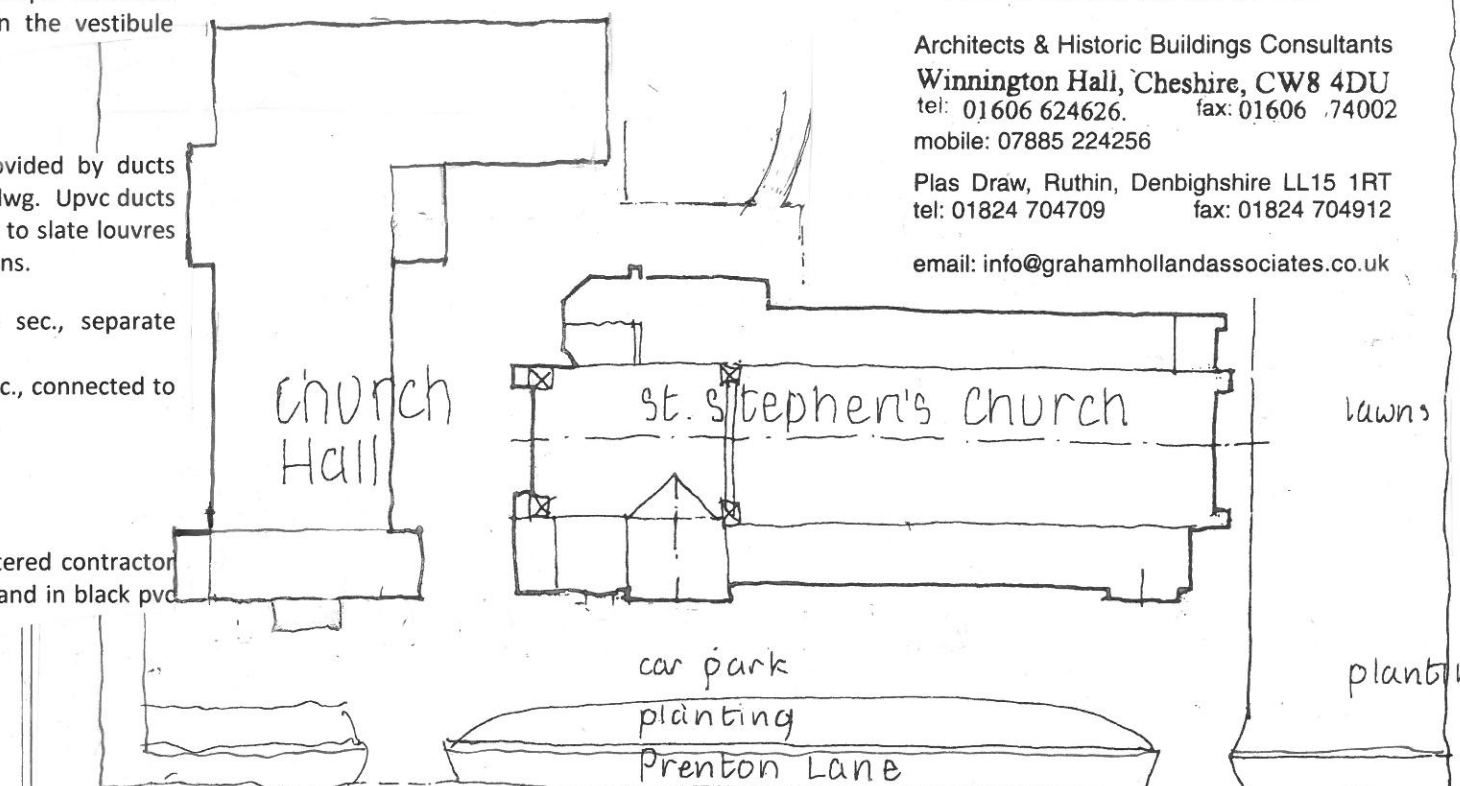 n the vestibule
ovided by ducts
dwg. Upvc ducts
to slate louvres
ns.
sec., separate
c., connected to
tered contractor
and in black pvc
Architects & Historic Buildings Consultants
Winnington Hall, Cheshire, CW8 4DU
tel: 01606 624626. fax: 01606 74002
mobile: 07885 224256
Plas Draw, Ruthin, Denbighshire LL15 1RT
tel: 01824 704709 fax: 01824 704912
email: info@grahamhollandassociates.co.uk
Church
Hall
St. Stephen's Church
lawns
car park
planting
Prenton Lane